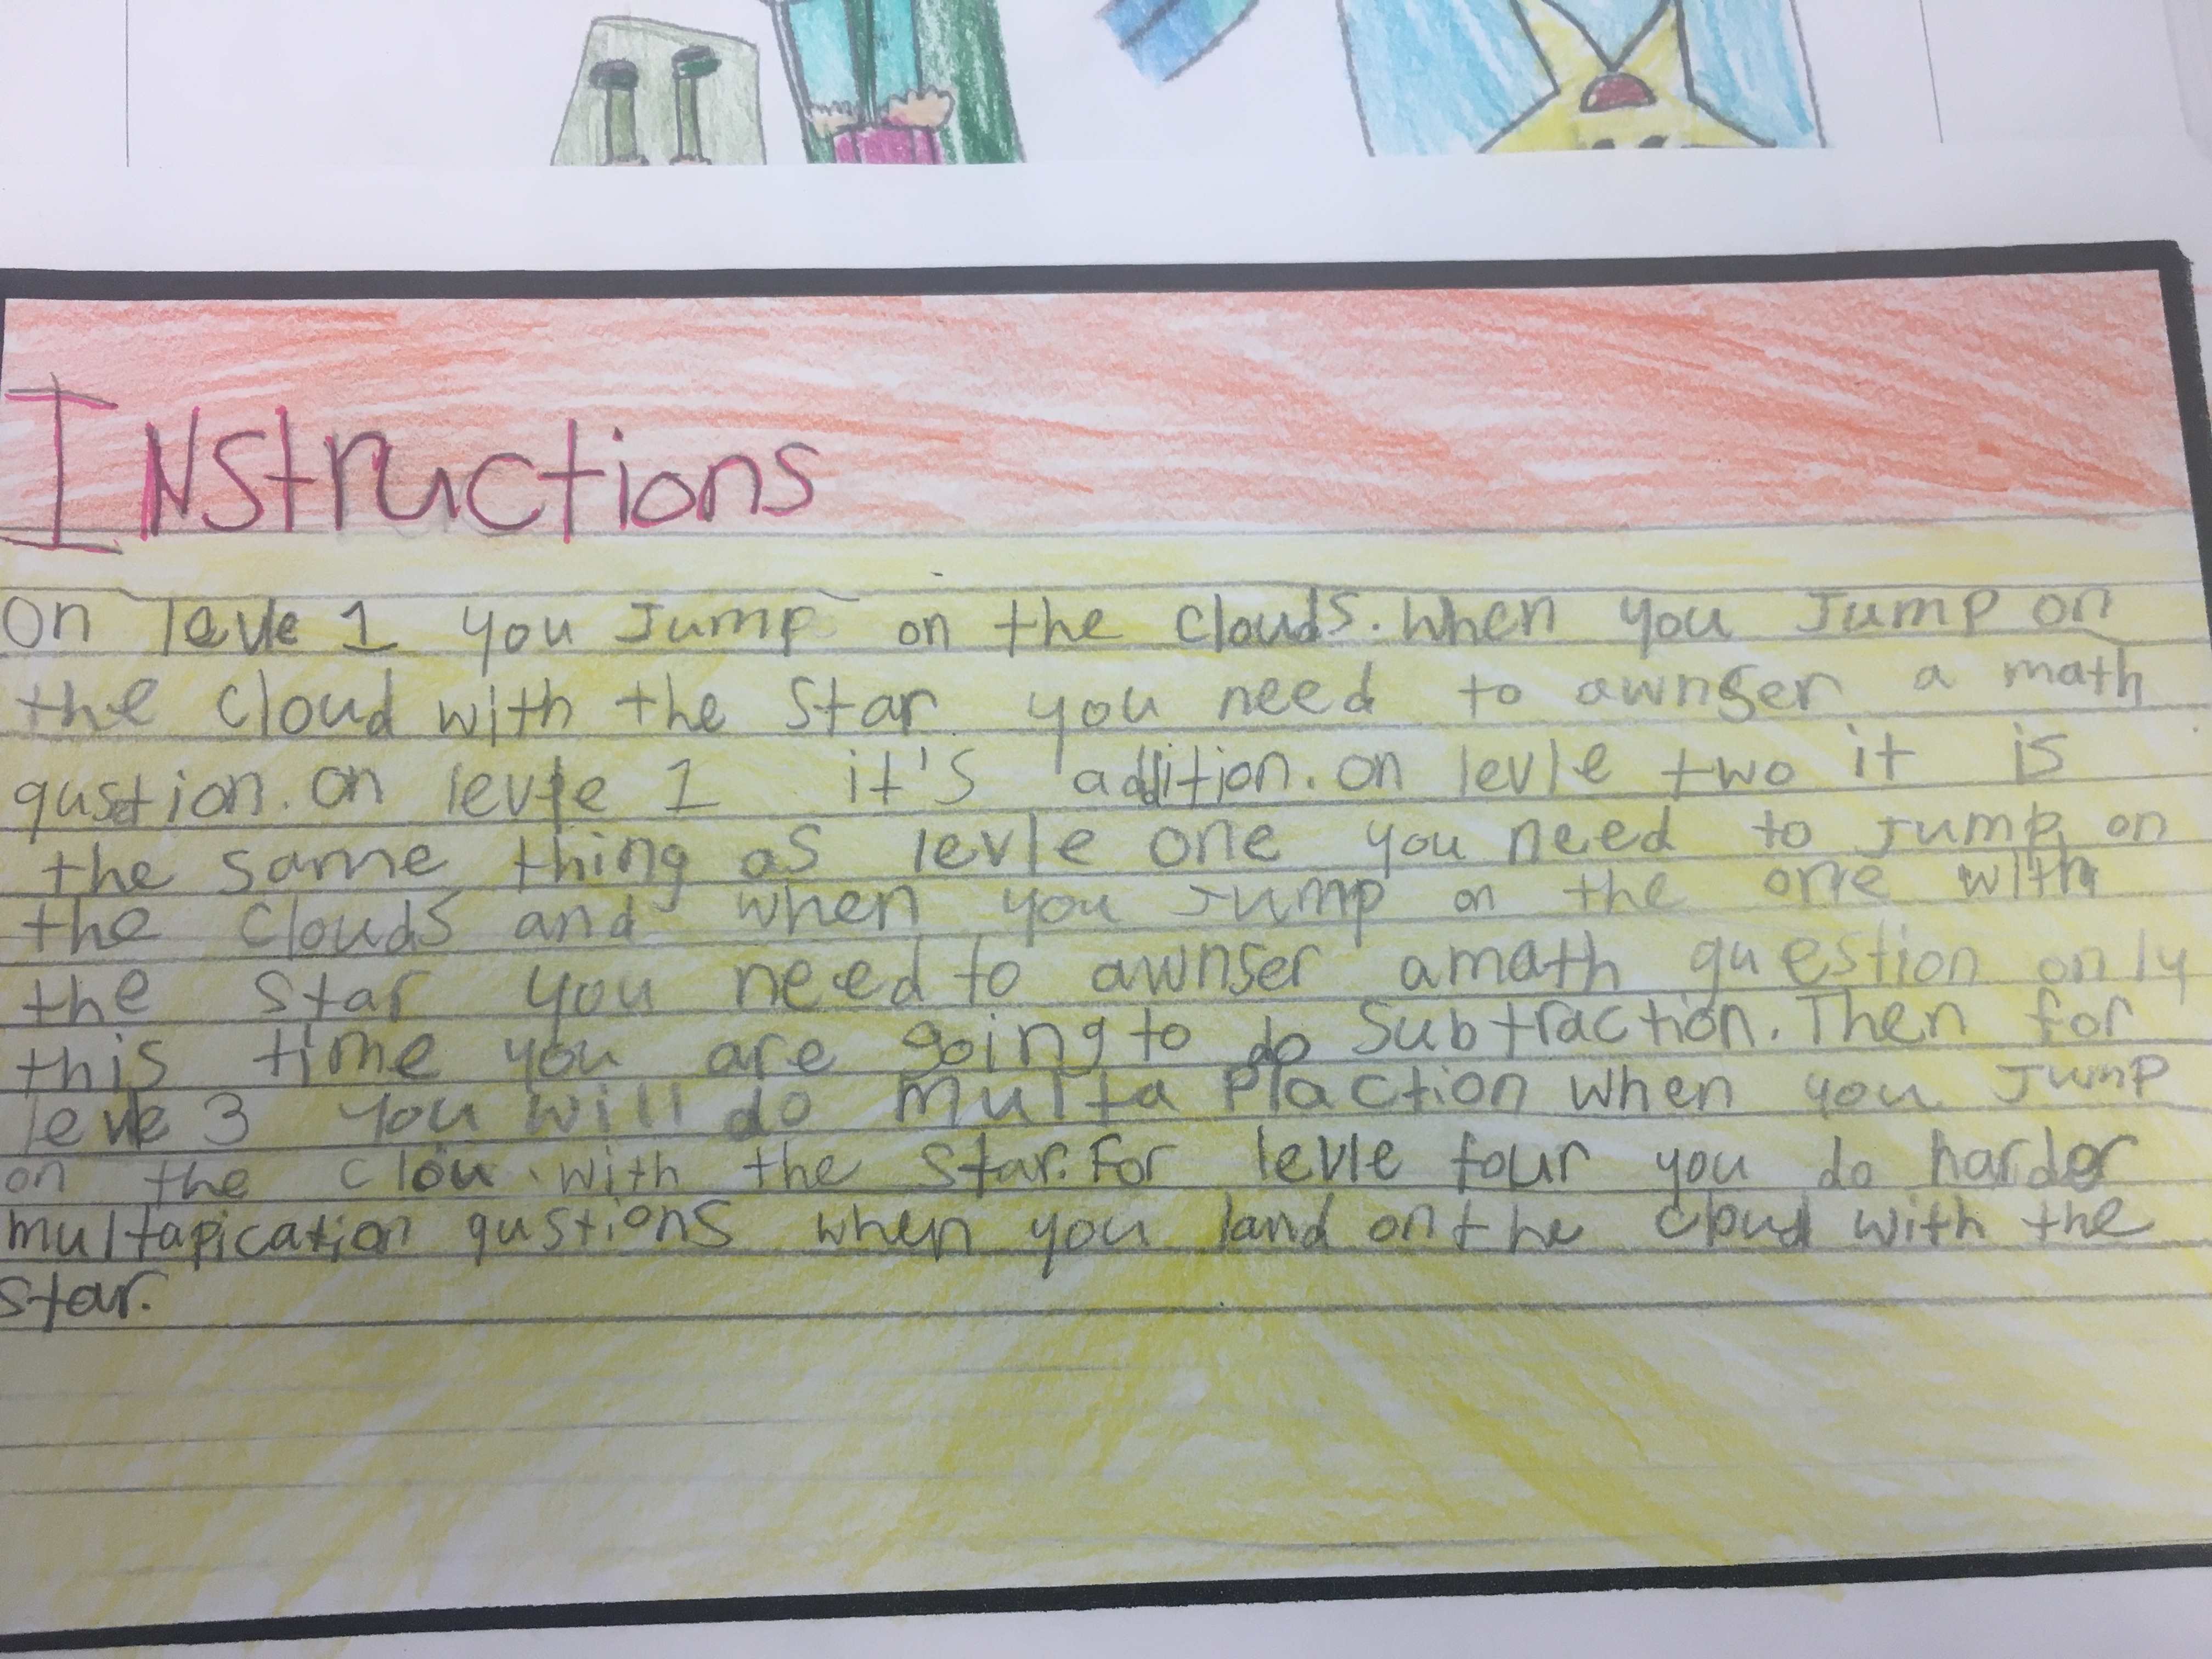 Instructions
on levle 1 you Jump on the clouds. When you Jump on
the cloud with the star you need to awnser a math
qustion. on levle 1 it's addition. on levle two it is
the same thing as levle one you need to Jump on
the clouds and when you Jump on the one with
the star you need to awnser a math question only
this time you are going to do Subtraction. Then for
levle 3 you will do multa Plaction when you Jump
on the clou with the star. For levle four you do harder
multapication qustions when you land on the cloud with the
star.